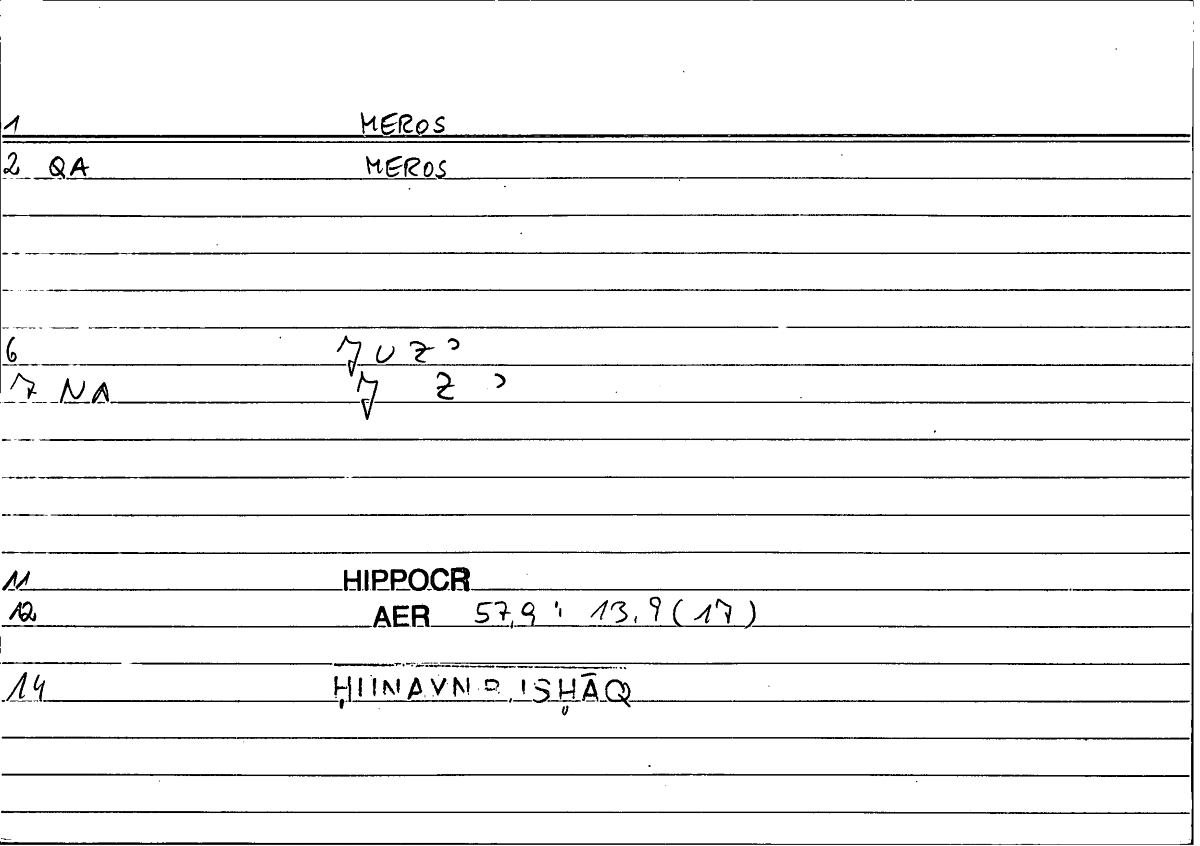 1 MEROS
2 QA MEROS
6 ǦUZʾ
7 NA Ǧ Z ʾ
11 HIPPOCR
12 AER 57,9 : 13,9 (17)
14 ḤUNAYN B. ISḤĀQ